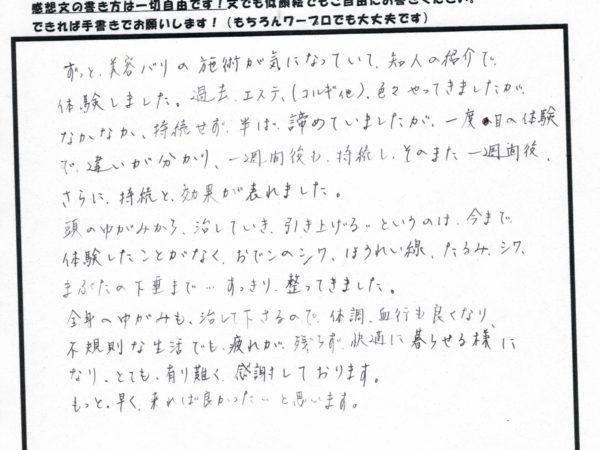 感想文の書き方は一切自由です！文でも似顔絵でもご自由にお書きください。
できれば手書きでお願いします！（もちろんワープロでも大丈夫です）
ずっと、美容バリの施術が気になっていて、知人の紹介で、
体験しました。過去、エステ、（コルギ他）、色々やってきましたが、
なかなか、持続せず、半ば、諦めていましたが、一度目の体験
で、違いが分かり、一週間後も、持続し、そのまた一週間後、
さらに、持続と、効果が表れました。
頭のゆがみから、治していき、引き上げる‥というのは、今まで、
体験したことがなく、おでこのシワ、ほうれい線、たるみ、シワ、
まぶたの下垂まで…すっきり、整ってきました。
全身のゆがみも、治して下さるので、体調、血行も良くなり、
不規則な生活でも、疲れが、残らず、快適に暮らせる様に
なり、とても、有り難く、感謝しております。
もっと、早く、来れば良かった…と思います。